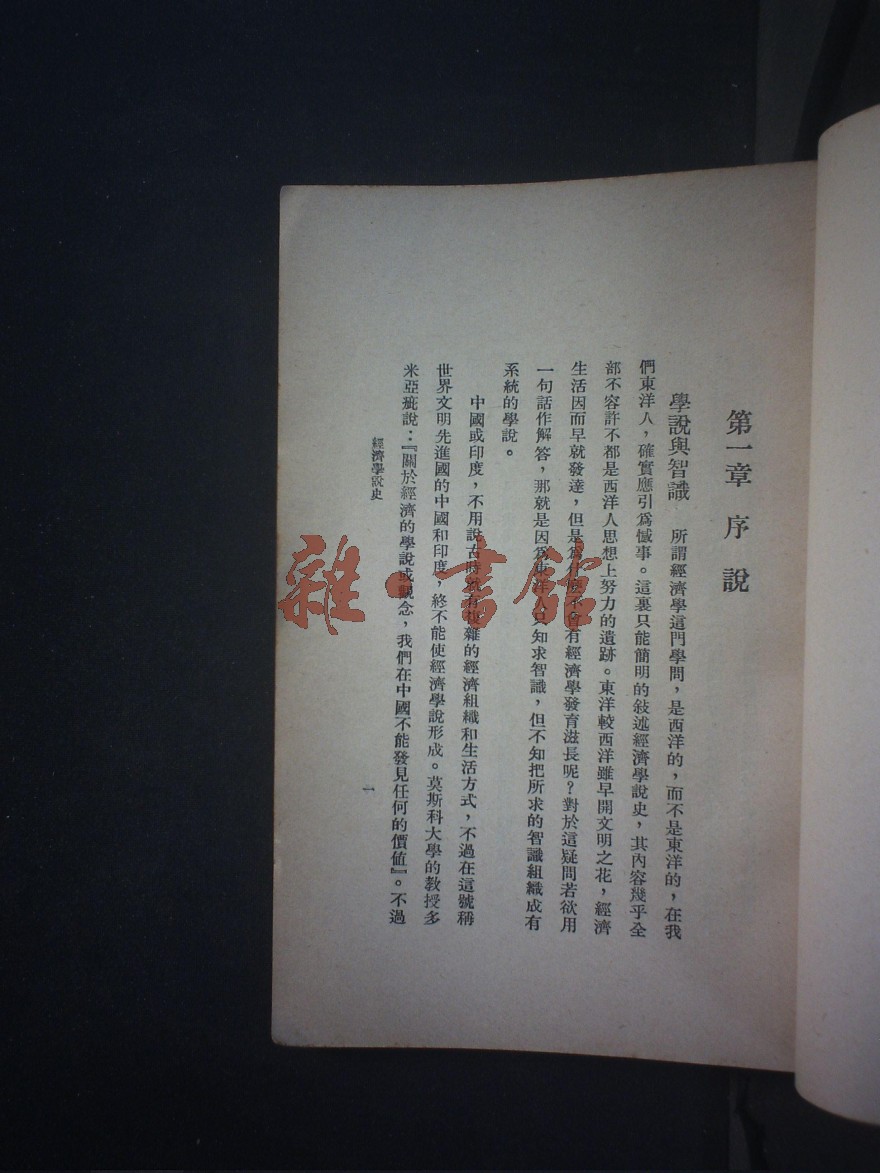 第一章 序說
學說與智識 所謂經濟學這門學問，是西洋的，而不是東洋的，在我
們東洋人，確實應引爲憾事。這裏只能簡明的敍述經濟學說史，其內容幾乎全
部不容許不都是西洋人思想上努力的遺跡。東洋較西洋雖早開文明之花，經濟
生活因而早就發達，但是爲什麼不會有經濟學發育滋長呢？對於這疑問若欲用
一句話作解答，那就是因爲東洋人只知求智識，但不知把所求的智識組織成有
系統的學說。
中國或印度，不用說古時就有複雜的經濟組織和生活方式，不過在這號稱
世界文明先進國的中國和印度，終不能使經濟學說形成。莫斯科大學的教授多
米亞疵說：『關於經濟的學說或觀念，我們在中國不能發見任何的價値』。不過
經濟學說史
一
雜·書館